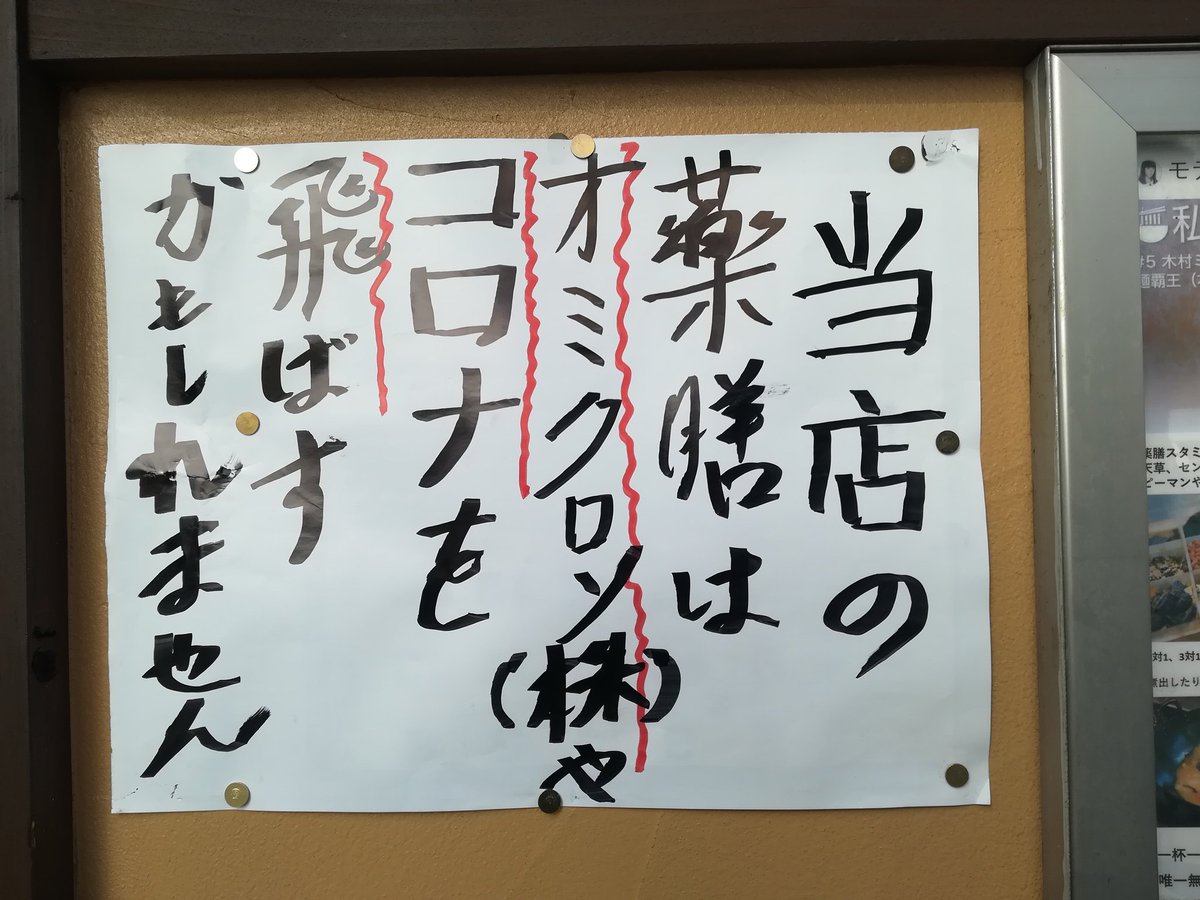 当店の
薬膳は
オミクロン(株)や
コロナを
飛ばす
かもしれません
モデ
私
#5 木村ミ
麺覇王(
薬膳スタミ
天草、セン
ピーマンや
対1、3対1
煮出したり
一杯一
唯一無